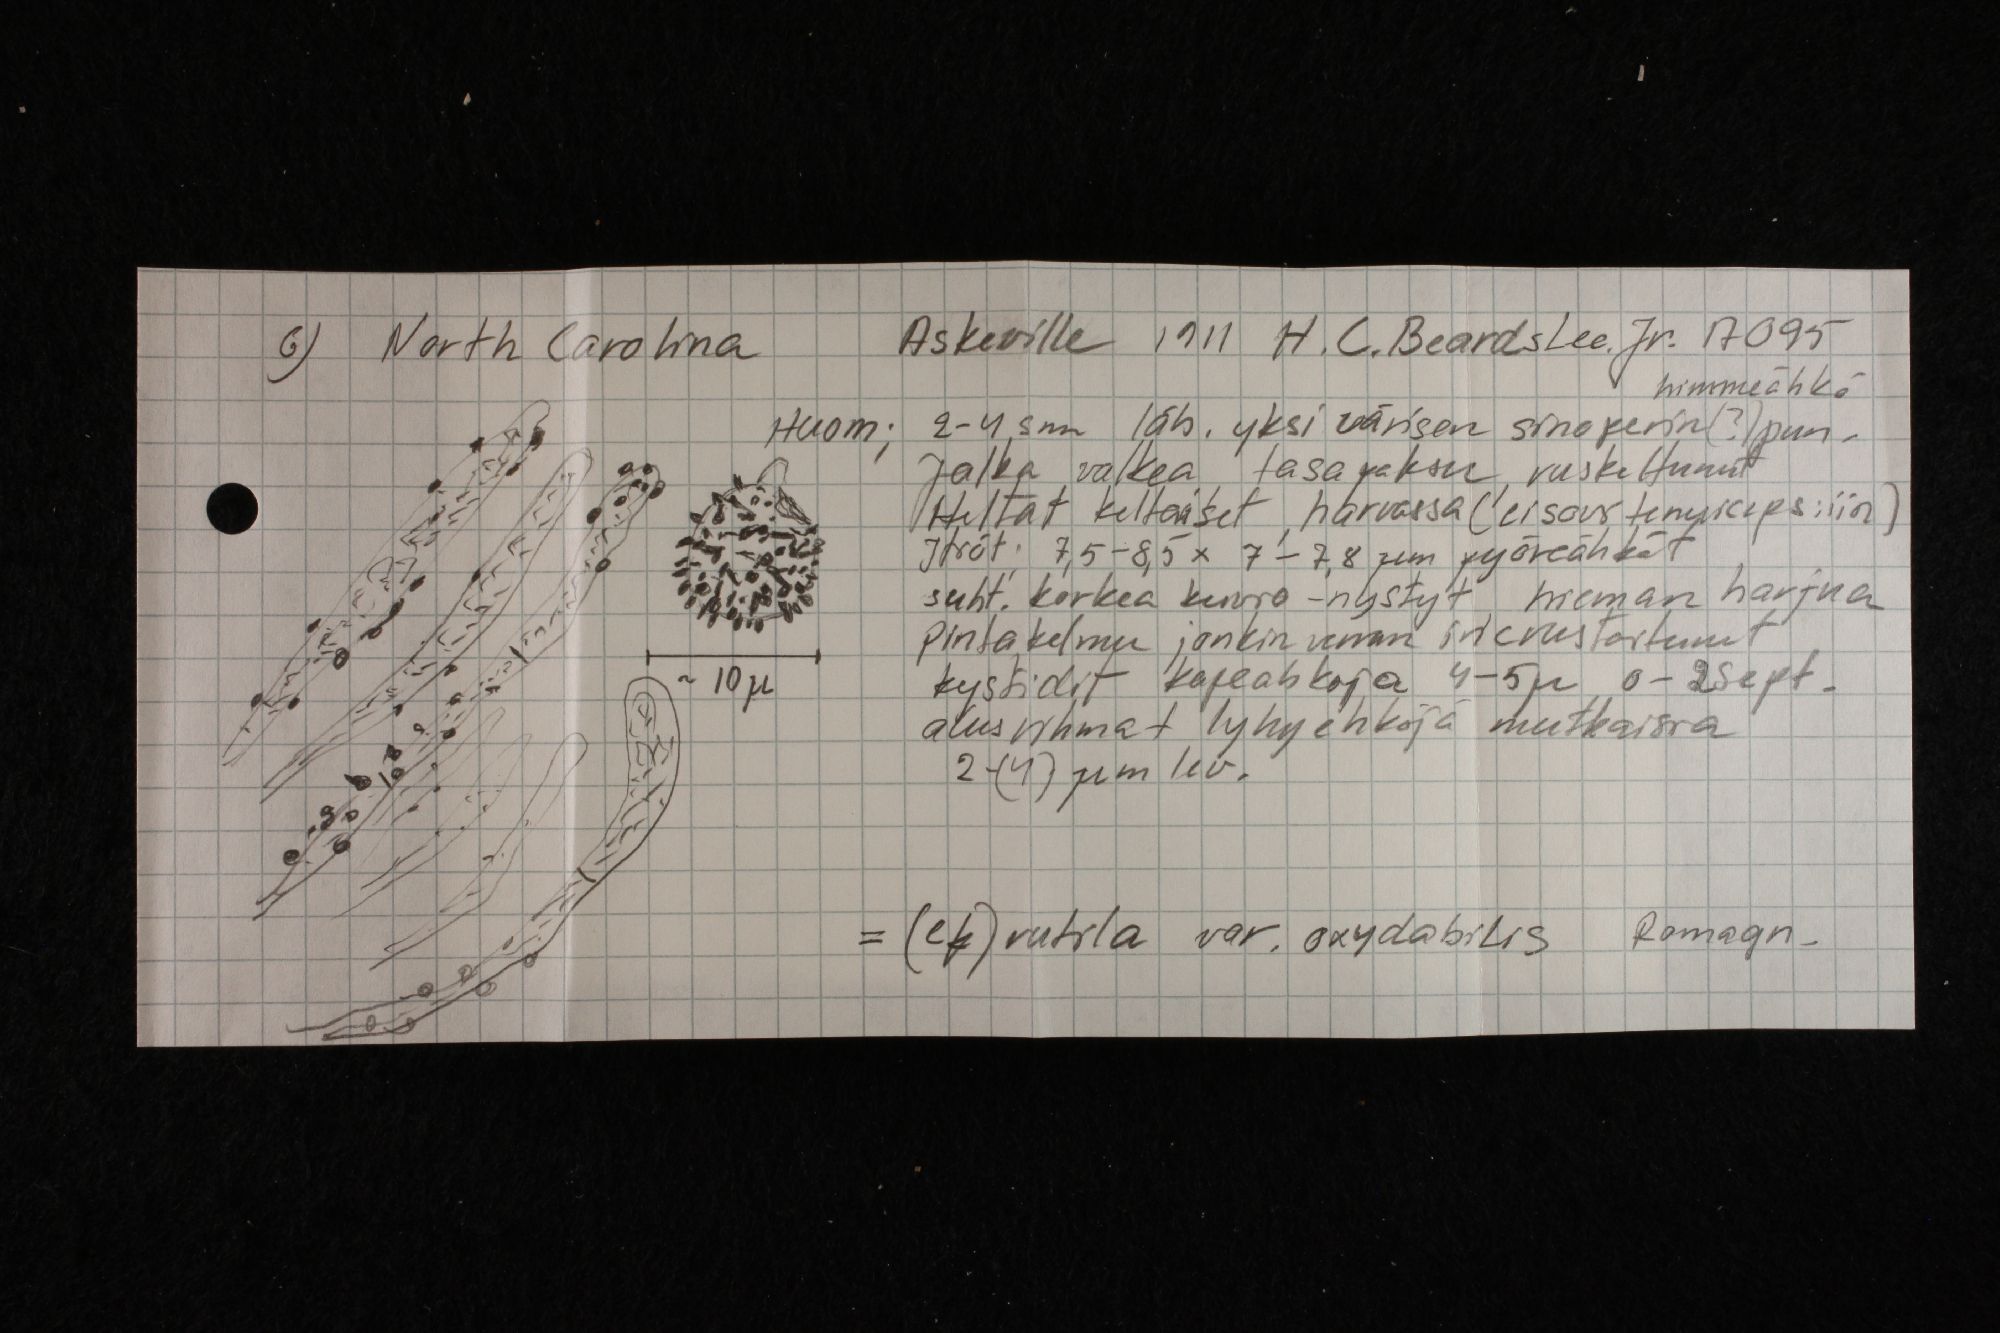 6) North Carolina Askeville 1911 H. C. Beardslee. Jr. 17095
himmeähkö
Huom; 2-4 läh. yksi värisen sinoperin(?) pun.
Jalka valkea tasapaksu ruskettunut
Heltat keltaiset, harvassa (ei sovr tenuiceps:iin)
Itiöt: 7,5-8,5 x 7-7,8 µm pyöreähköt
suht. korkea kuvio -nystyt, hieman harjua
Pintakelmu jonkin verran incrustoitunut
kystidit kapeahkoja 4-5µ 0-2 sept.
alusrihmat lyhyehköjä mutkaisia
2-(4) µm lev.
~ 10 µ
= (ef) rutila var. oxydabilis Romagn.